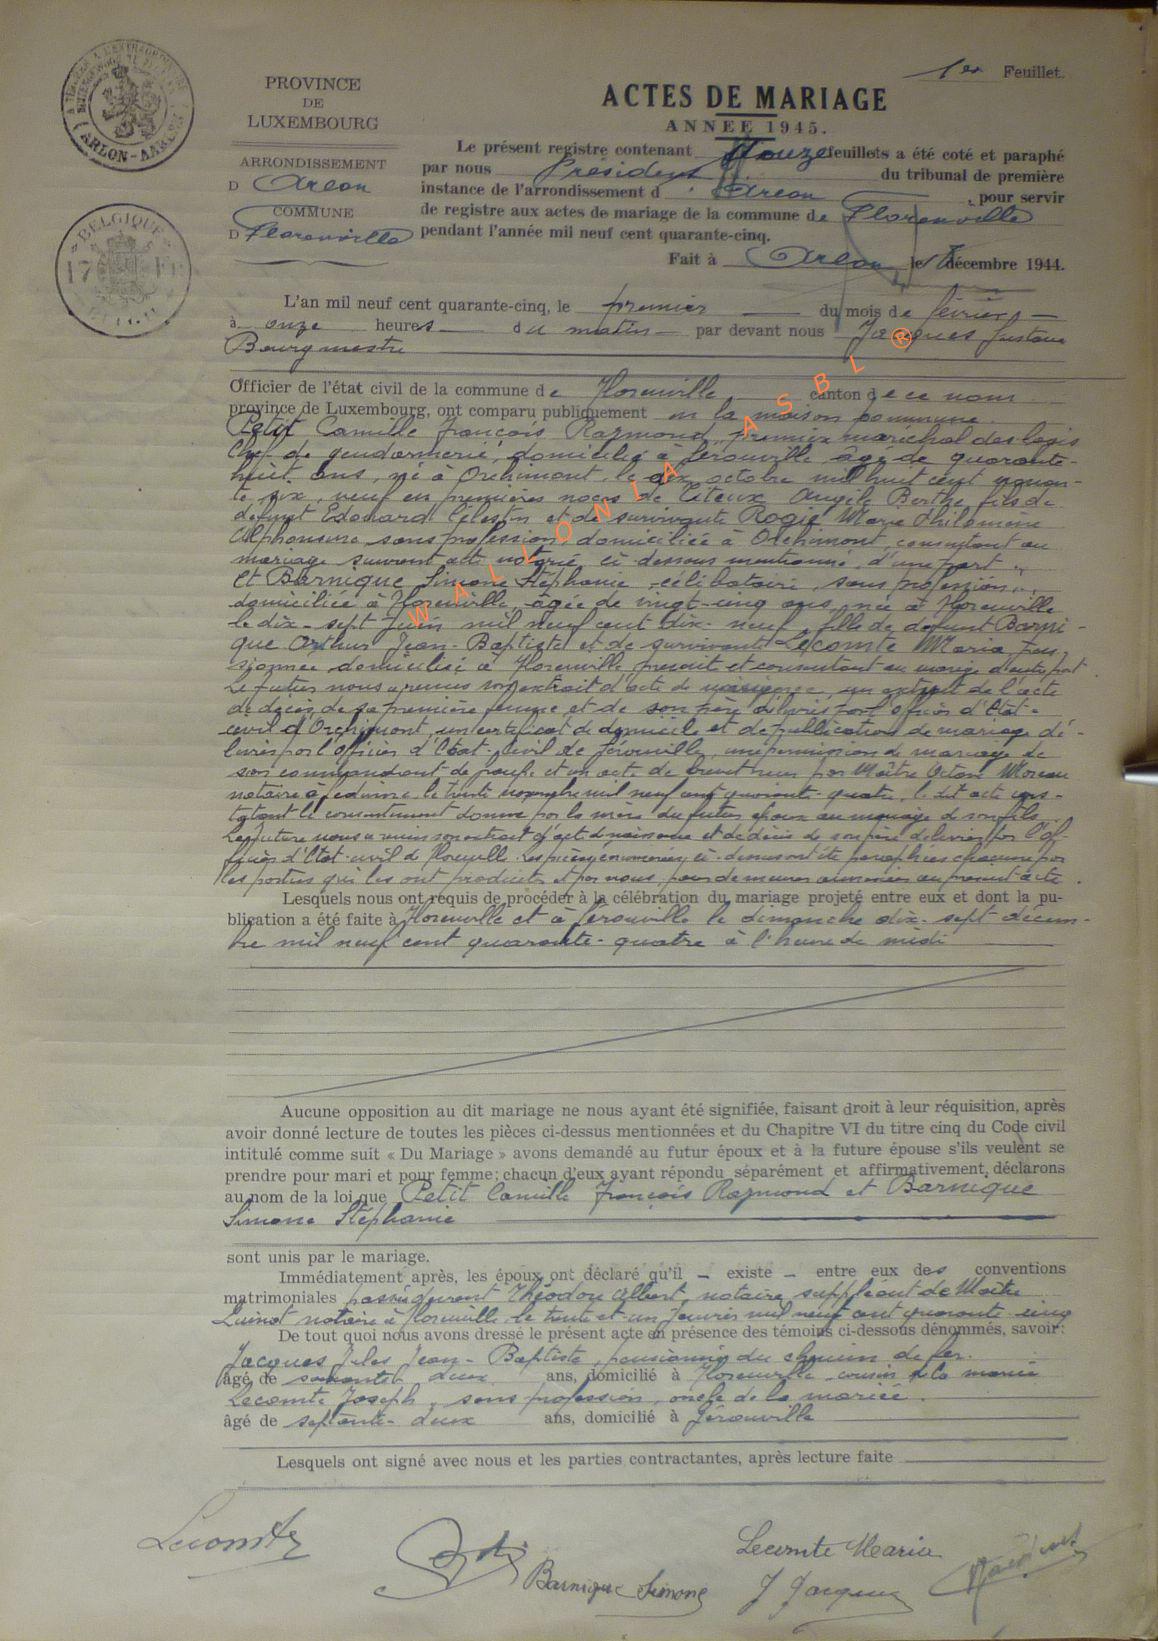 1er Feuillet.
PROVINCE
DE
LUXEMBOURG
ARRONDISSEMENT
D Arlon
COMMUNE
D Florenville
ARLON - AARLEN
BELGIQUE
17 FR
ACTES DE MARIAGE
ANNEE 1945.
Le présent registre contenant douze feuillets a été coté et paraphé
par nous Président du tribunal de première
instance de l'arrondissement d'Arlon, pour servir
de registre aux actes de mariage de la commune de Florenville
pendant l'année mil neuf cent quarante-cinq.
Fait à Arlon, le décembre 1944.
L'an mil neuf cent quarante-cinq, le premier du mois de février
à onze heures du matin par devant nous Jacques Gustave
Bourgmestre
Officier de l'état civil de la commune de Florenville canton de ce nom
province de Luxembourg, ont comparu publiquement en la maison commune
Petit Camille François Raymond, premier maréchal des logis
Chef de gendarmerie, domicilié à Gérouville, âgé de quarante-
huit ans, né à Orchimont, le dix octobre mil huit cent nonan-
te six, veuf en premières noces de Titeux Angèle Berthe, fils de
defunt Edouard Célestin et de survivante Rogie Marie Philomène
Alphonsine sans profession, domiciliée à Orchimont, consentant au
mariage suivant acte notarié ci-dessous mentionné, d'une part
Et Barnique Simone Stéphanie célibataire, sans profession,
domiciliée à Florenville, âgée de vingt-cinq ans, née à Florenville
le dix-sept Juin mil neuf cent dix-neuf, fille de defunt Barni-
que Arthur Jean-Baptiste et de survivante Lecomte Maria, pen-
sionnée domiciliée à Florenville présente et consentant au mariage d'autre part
Le futur nous a remis son extrait d'acte de naissance, un extrait de l'acte
de décès de sa première femme et de son père délivrés par l'officier d'Etat-
civil d'Orchimont, un certificat de domicile et de publication de mariage dé-
livrés par l'officier d'Etat-civil de Gérouville, une permission de mariage de
son commandant de groupe et un acte de brevet reçu par Maître Octave Moreau
notaire à Gedinne le trente novembre mil neuf cent quarante-quatre, le dit acte cons-
tatant le consentement donné par la mère du futur époux au mariage de son fils.
La future nous a remis son extrait d'acte de naissance et de décès de son père délivrés par l'of-
ficier d'Etat-civil de Florenville. Les pièces énumérées ci-dessus ont été paraphées chacune par
les parties qui les ont produites et par nous, pour demeurer annexées au présent acte.
Lesquels nous ont requis de procéder à la célébration du mariage projeté entre eux et dont la pu-
blication a été faite à Florenville et à Gérouville le dimanche dix-sept décem-
bre mil neuf cent quarante-quatre à l'heure de midi
Aucune opposition au dit mariage ne nous ayant été signifiée, faisant droit à leur réquisition, après
avoir donné lecture de toutes les pièces ci-dessus mentionnées et du Chapitre VI du titre cinq du Code civil
intitulé comme suit « Du Mariage » avons demandé au futur époux et à la future épouse s'ils veulent se
prendre pour mari et pour femme; chacun d'eux ayant répondu séparément et affirmativement, déclarons
au nom de la loi que Petit Camille François Raymond et Barnique
Simone Stéphanie
sont unis par le mariage.
Immédiatement après, les époux ont déclaré qu'il – existe – entre eux des conventions
matrimoniales passées devant Théodore Albert, notaire suppléant de Maître
notaire à Florenville le trente et un Janvier mil neuf cent quarante cinq
De tout quoi nous avons dressé le présent acte en présence des témoins ci-dessous dénommés, savoir:
Jacques Jules Jean-Baptiste, pensionné du chemin de fer.
âgé de soixante deux ans, domicilié à Florenville cousin de la mariée
Lecomte Joseph, sans profession, oncle de la mariée.
âgé de septante-deux ans, domicilié à Gérouville
Lesquels ont signé avec nous et les parties contractantes, après lecture faite
Lecomte
Barnique Simone
Lecomte Maria
J Jacques
WALLONIA ASBL ®